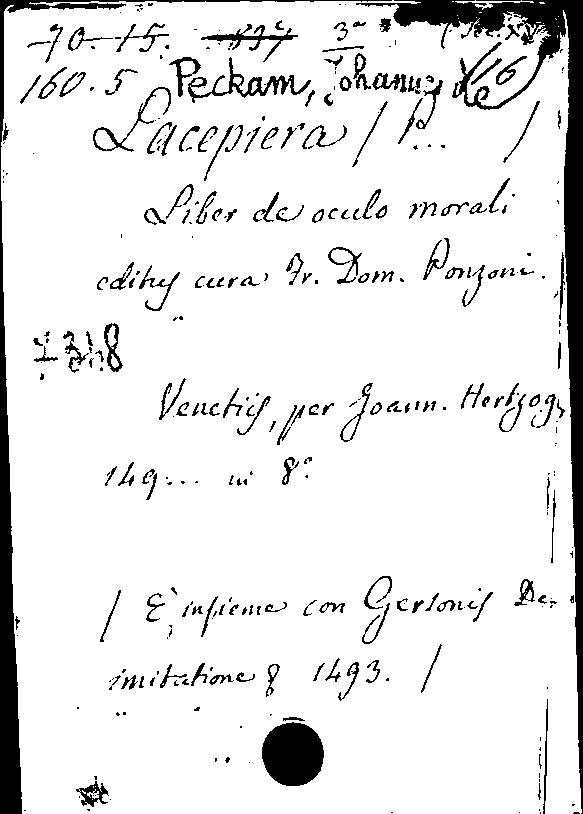 70.15. 3ª
160.5 Peckam, Johannes de
Lacepiera / P... /
Liber de oculo morali
editus cura Fr. Dom. Ponzoni.
Venetiis, per Joann. Hertzog,
149... in 8º
/ È insieme con Gersonis De
imitatione & 1493. /